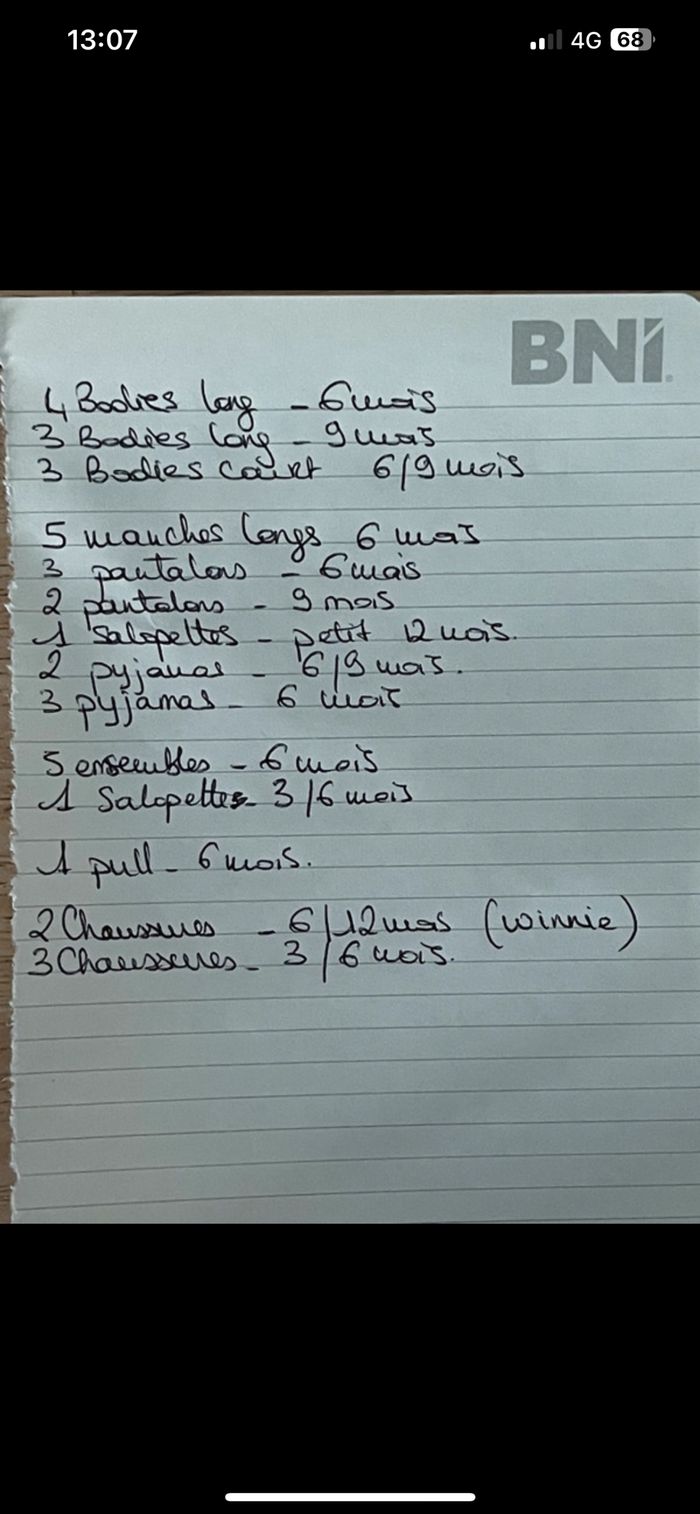 13:07
4G 68
BNI
4 Bodies long - 6 mois
3 Bodies long - 9 mois
3 Bodies court 6/9 mois
5 manches longs 6 mois
3 pantalons - 6 mois
2 pantalons - 9 mois
1 Salopettes - petit 12 mois.
2 pyjamas - 6/9 mois.
3 pyjamas - 6 mois
5 ensembles - 6 mois
1 Salopettes - 3/6 mois
1 pull - 6 mois.
2 Chaussures - 6/12 mois (winnie)
3 Chaussures - 3/6 mois.